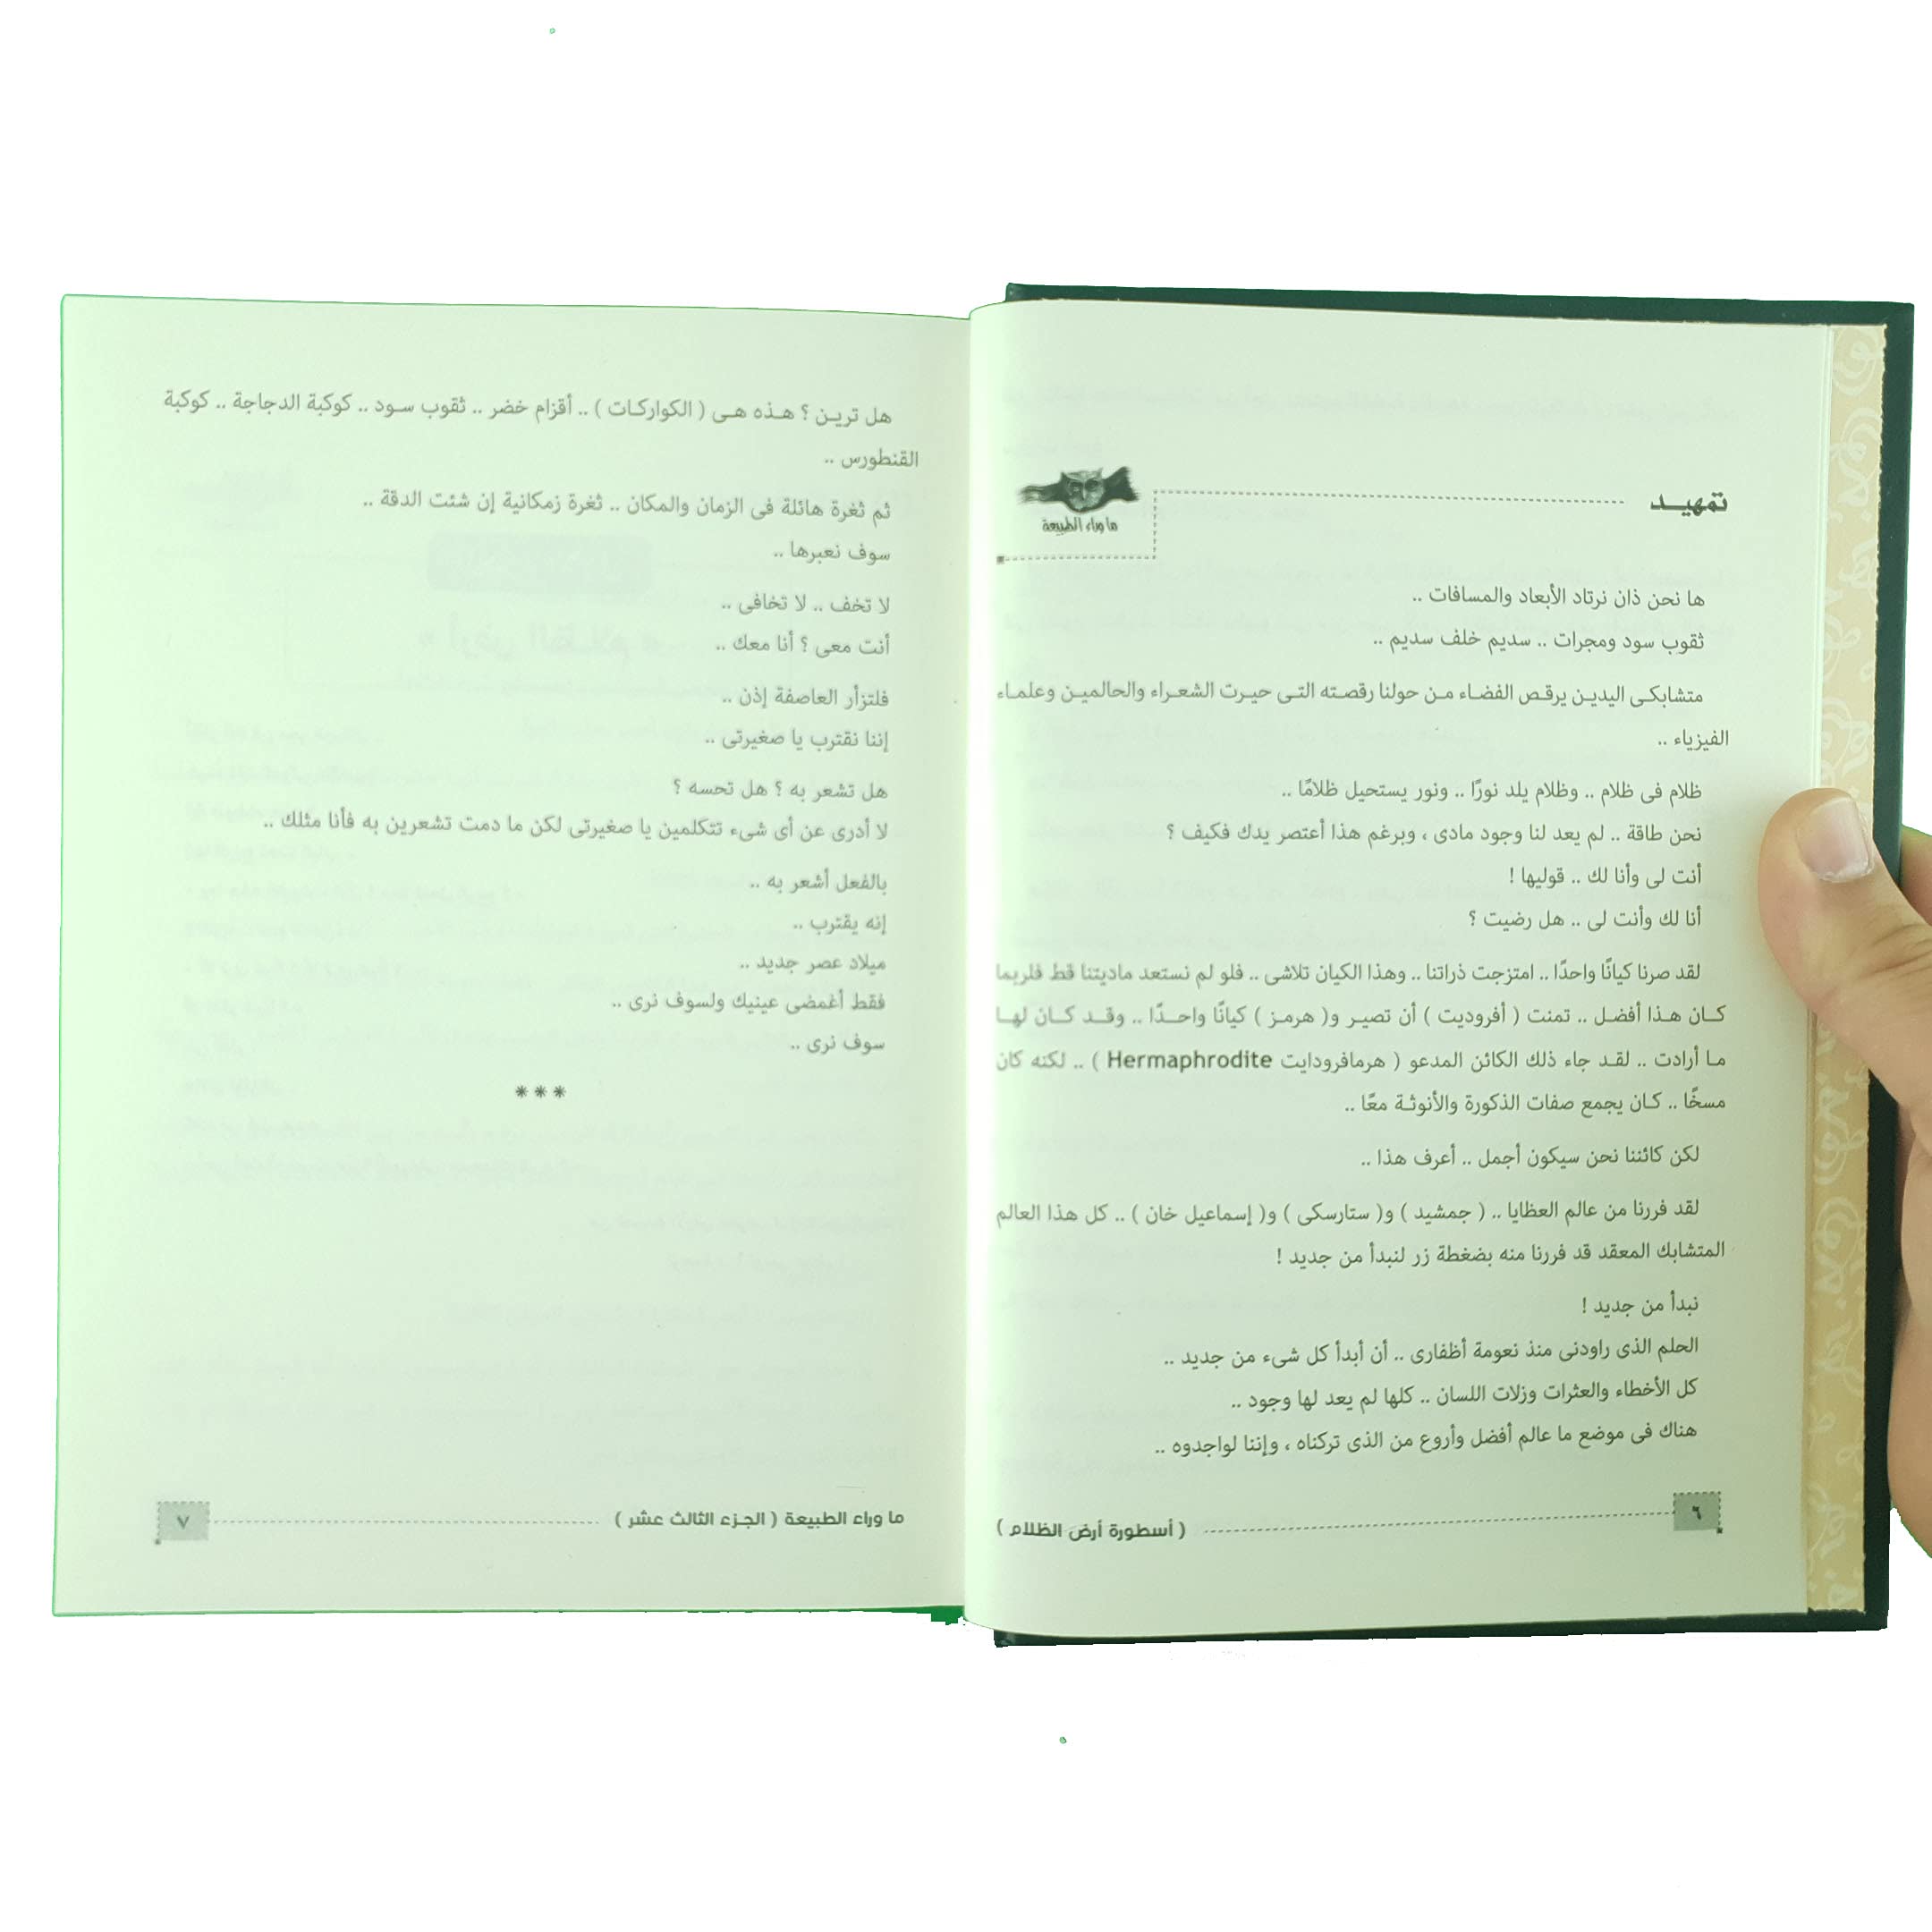 تمهيـد
ما وراء الطبيعة
ها نحن ذان نرتاد الأبعاد والمسافات ..
ثقوب سود ومجرات .. سديم خلف سديم ..
متشابكـى اليديـن يرقـص الفضـاء مـن حولنا رقصـته التـى حيـرت الشعـراء والحالميـن وعلمـاء
الفيزياء ..
ظلام فى ظلام .. وظلام يلد نورًا .. ونور يستحيل ظلامًا ..
نحن طاقة .. لم يعد لنا وجود مادى ، وبرغم هذا أعتصر يدك فكيف ؟
أنت لى وأنا لك .. قوليها !
أنا لك وأنت لى .. هل رضيت ؟
لقد صرنا كيانًا واحدًا .. امتزجت ذراتنا .. وهذا الكيان تلاشى .. فلو لم نستعد ماديتنا قط فلربما
كـان هـذا أفضـل .. تمنت ( أفروديت ) أن تصيـر و( هرمـز ) كيانًا واحـدًا .. وقـد كـان لهـا
مـا أرادت .. لقـد جاء ذلك الكائن المدعو ( هرمافرودايت Hermaphrodite ) .. لكنه كان
مسخًا .. كـان يجمع صفات الذكورة والأنوثـة معًا ..
لكن كائننا نحن سيكون أجمل .. أعرف هذا ..
لقد فررنا من عالم العظايا .. ( جمشيد ) و( ستارسكى ) و( إسماعيل خان ) .. كل هذا العالم
المتشابك المعقد قد فررنا منه بضغطة زر لنبدأ من جديد !
نبدأ من جديد !
الحلم الذى راودنى منذ نعومة أظفارى .. أن أبدأ كل شىء من جديد ..
كل الأخطاء والعثرات وزلات اللسان .. كلها لم يعد لها وجود ..
هناك فى موضع ما عالم أفضل وأروع من الذى تركناه ، وإننا لواجدوه ..
٦ ( أسطورة أرض الظلام )
هل تريـن ؟ هـذه هـى ( الكواركـات ) .. أقزام خضر .. ثقوب سـود .. كوكبة الدجاجة .. كوكبة
القنطورس ..
ثم ثغرة هائلة فى الزمان والمكان .. ثغرة زمكانية إن شئت الدقة ..
سوف نعبرها ..
لا تخف .. لا تخافى ..
أنت معى ؟ أنا معك ..
فلتزأر العاصفة إذن ..
إننا نقترب يا صغيرتى ..
هل تشعر به ؟ هل تحسه ؟
لا أدرى عن أى شىء تتكلمين يا صغيرتى لكن ما دمت تشعرين به فأنا مثلك ..
بالفعل أشعر به ..
إنه يقترب ..
ميلاد عصر جديد ..
فقط أغمضى عينيك ولسوف نرى ..
سوف نرى ..
***
ما وراء الطبيعة ( الجزء الثالث عشر ) ٧